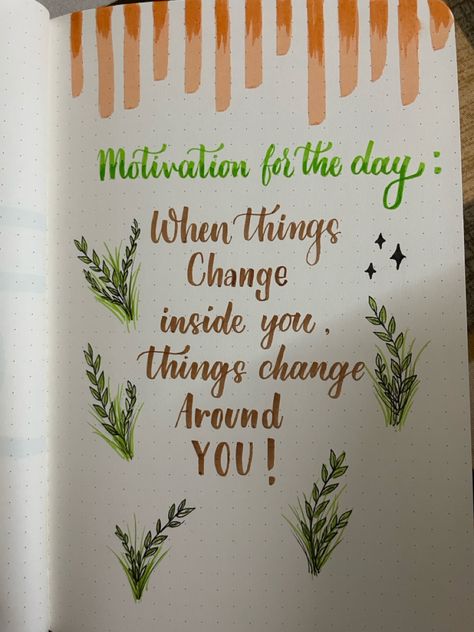 Motivation for the day :
When things
Change
inside you,
things change
Around
YOU!